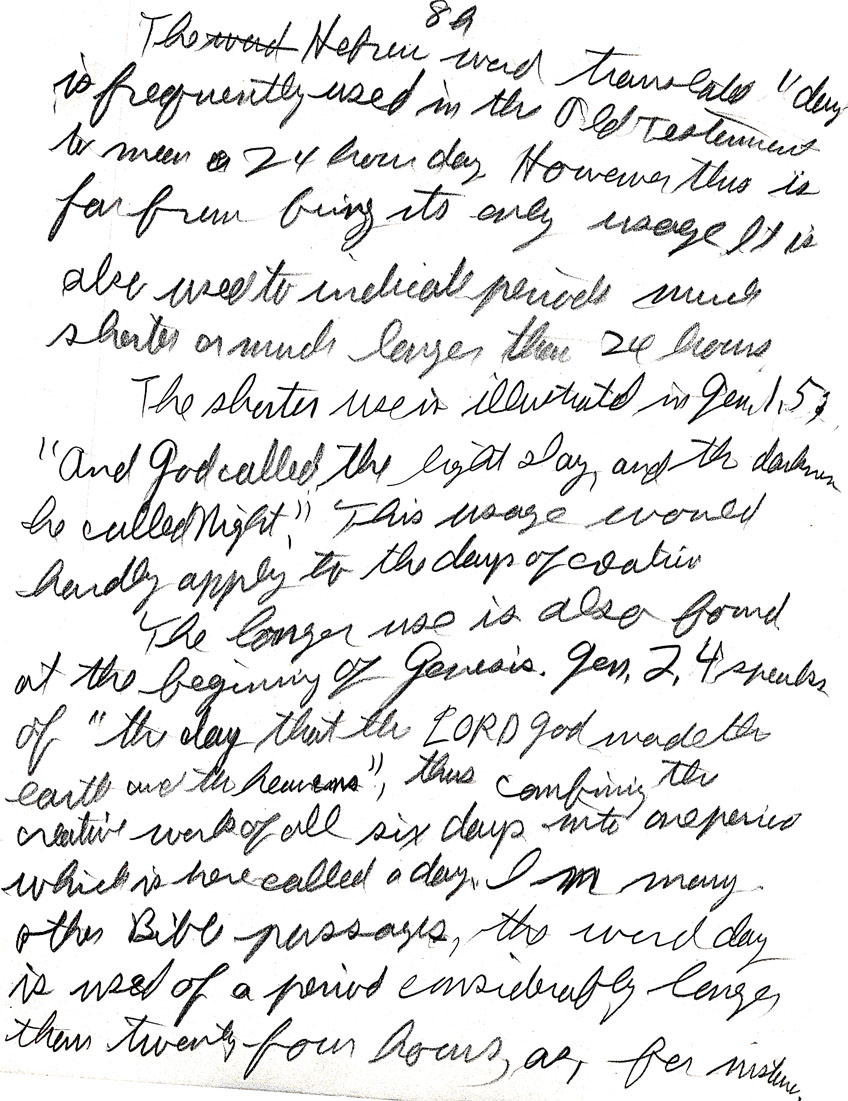 8a
The word Hebrew word translated "day
is frequently used in the Old Testament
to mean a 24 hour day. However this is
far from being its only usage It is
also used to indicate periods much
shorter or much longer than 24 hours
The shorter use is illustrated in Gen. 1, 5;
"And God called the light day, and the darkness
he called Night." This usage would
hardly apply to the days of creation
The longer use is also found
at the beginning of Genesis. Gen. 2, 4 speaks
of "the day that the LORD God made the
earth and the heavens", thus combining the
creative work of all six days into one period
which is here called a day. In many
other Bible passages, the word day
is used of a period considerably longer
than twenty four hours, as, for instance,